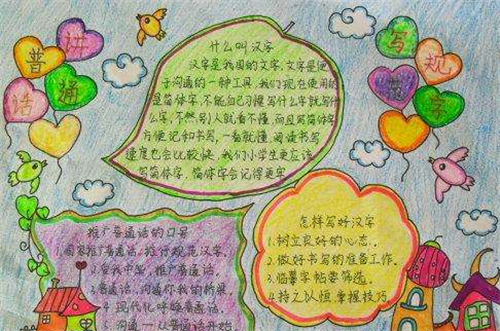 讲
普
通
话
写
规
范
字
什么叫汉字
汉字是我国的文字,文字是便
于沟通的一种工具,我们现在使用的
是简体字,不能自己懂写什么字就写什
么字,不然,别人就看不懂,而且写简体字
方便记和书写,一看就懂,阅读书写
速度也会比较快,我们小学生更应该
写简体字,简体字会记得更牢
推广普通话的口号
国家推广普通话,推行规范汉字.
2.爱我中华,推广普通话.
3.普通话,沟通你我的桥梁.
4.现代化呼唤普通话.
沟通—从普通话开始
怎样写好汉字
1.树立良好的心态.
2.做好书写的准备工作.
3.临摹字帖要筛选.
4.持之以恒 掌握技巧